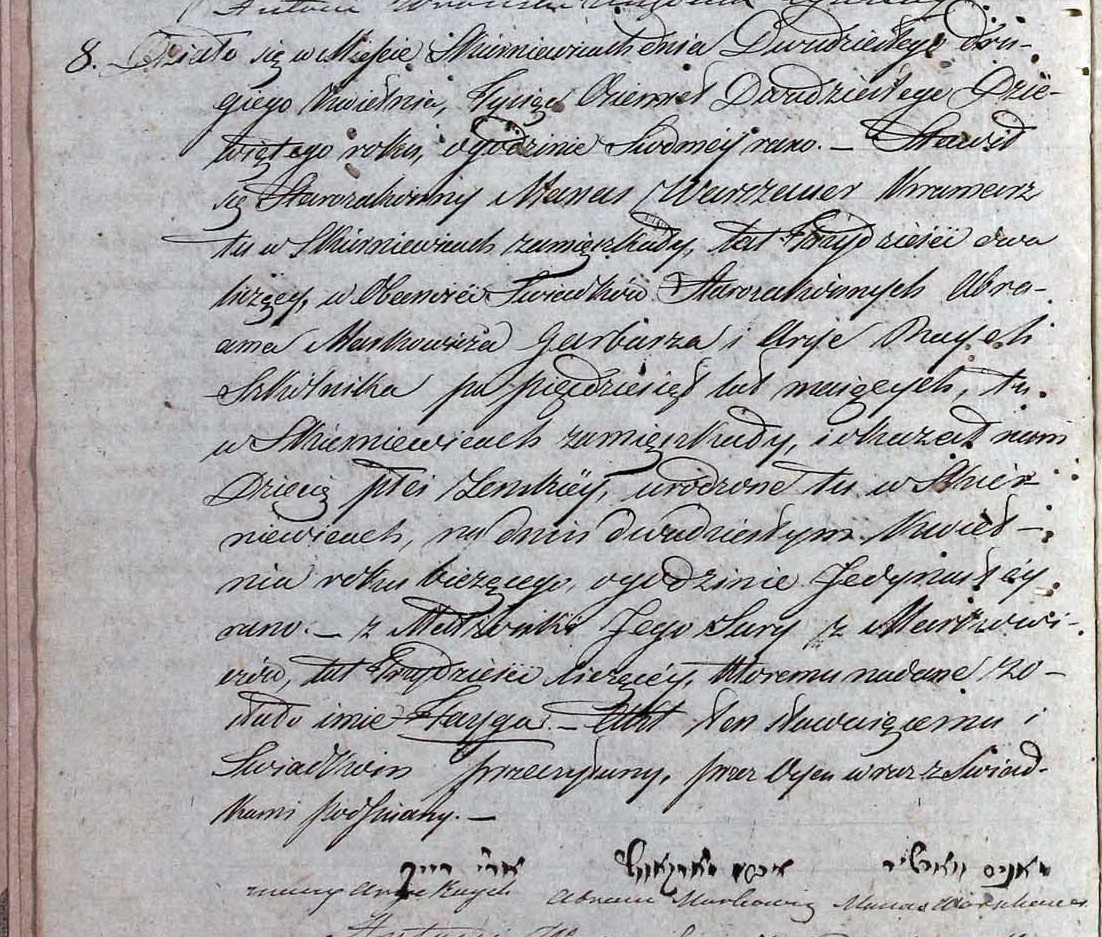 8. Działo się w Mieście Skierniewicach dnia Dwudziestego dru-
giego Kwietnia, Tysiąc Ośemset Dwudziestego Dzie-
wiątego roku, o godzinie Siódmey rano. — Stawił
się Starozakonny Manas Warszauer Kramarz
tu w Skierniewicach zamięszkały, lat Trzydzieści dwa
liczący, w Obecności Świadków Starozakonnych Abra-
ama Markowicza Garbarza i Arye
Szkólnika po pięćdziesiąt lat maiących, tu
w Skierniewicach zamięszkały, i okazał nam
Dziecię płci Żenskiey, urodzone tu w Skier-
niewicach, na dniu dwudziestym Kwiet-
nia roku bieżącego, o godzinie Jedynastey
rano. — z Małżonki Jego Sury z Markowi-
czów, lat Trzydzieści liczącey, ktoremu nadane zo-
stało imie Fayga. — Akt ten stawaiącemu i
Świadkom przeczytany, przez Oyca wraz z Świad-
kami podpisany. —
מאנیس
Abram Markowicz Manas Warschauer